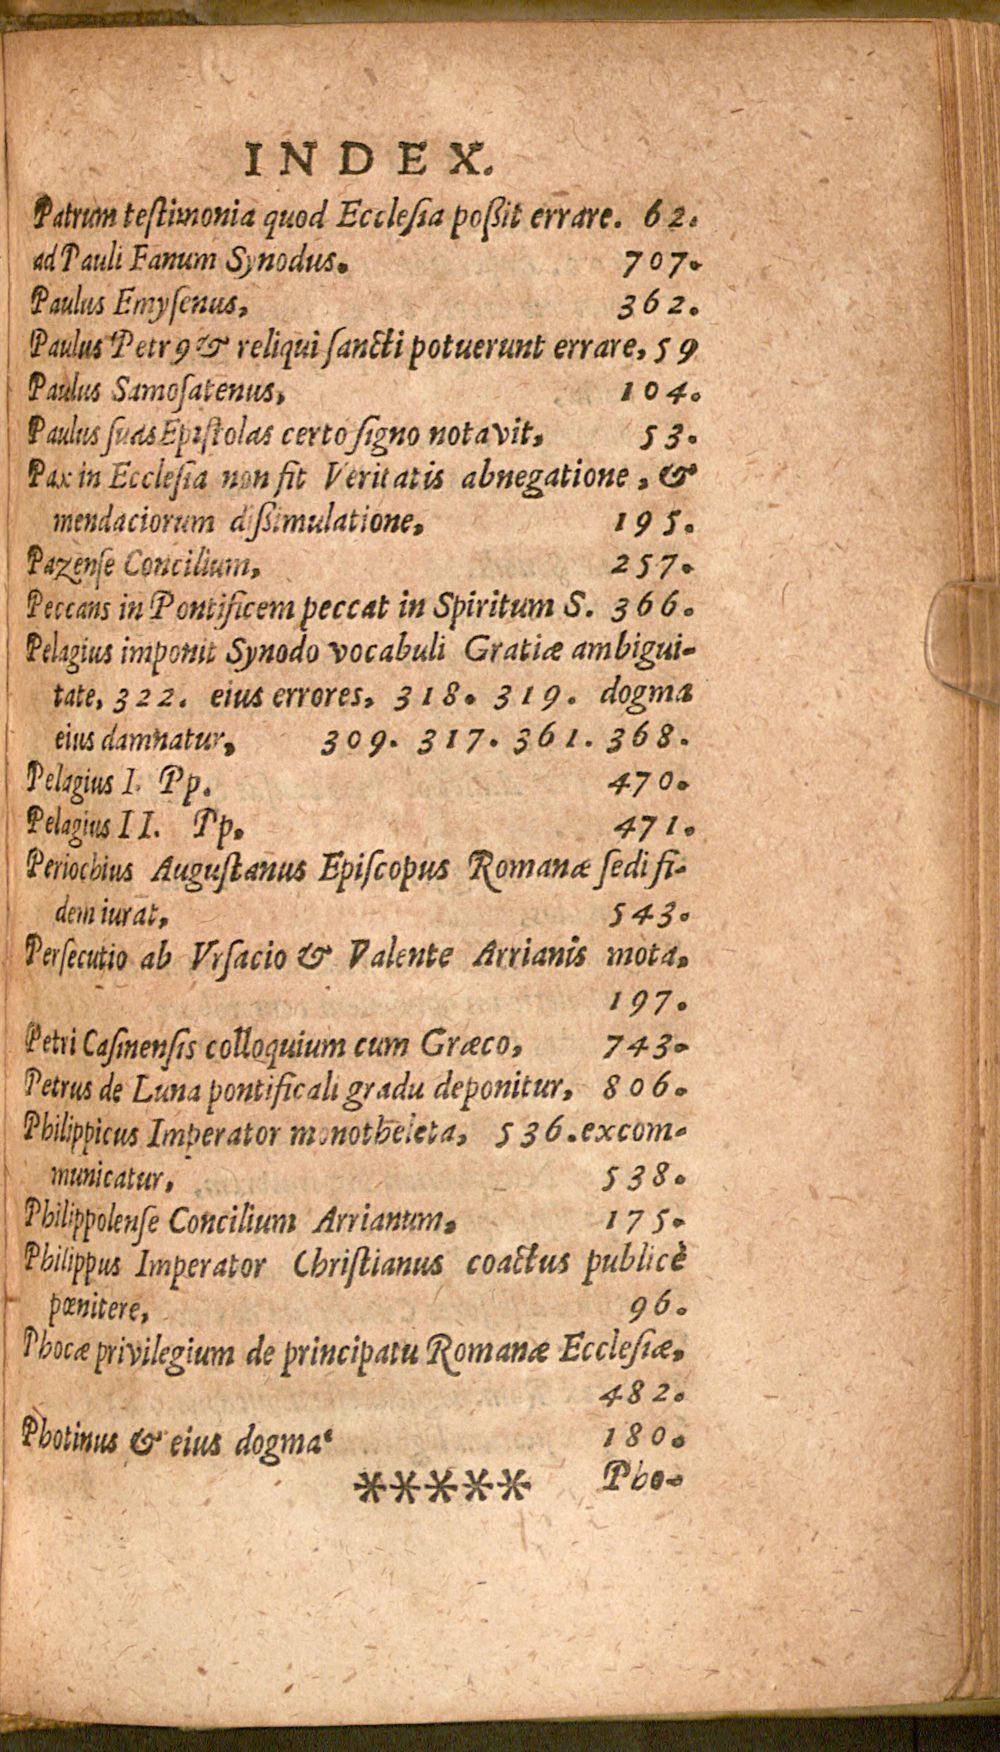 INDEX.
Patrum teſtimonia quod Eccleſia poßit errare. 62.
ad Pauli Fanum Synodus. 707.
Paulus Emyſenus, 362.
Paulus Petr9 & reliqui ſancti potuerunt errare, 59
Paulus Samoſatenus, 104.
Paulus ſuas Epiſtolas certo ſigno notavit, 53.
Pax in Eccleſia non fit Veritatis abnegatione, &
mendaciorum dißimulatione, 195.
Pazenſe Concilium, 257.
Peccans in Pontificem peccat in Spiritum S. 366.
Pelagius imponit Synodo vocabuli Gratiæ ambigui-
tate, 322. eius errores, 318. 319. dogma
eius damnatur, 309. 317. 361. 368.
Pelagius I. Pp. 470.
Pelagius II. Pp. 471.
Periochius Auguſtanus Epiſcopus Romanæ ſedi fi-
dem iurat, 543.
Perſecutio ab Vrſacio & Valente Arrianis mota,
197.
Petri Caſinenſis colloquium cum Græco, 743.
Petrus de Luna pontificali gradu deponitur, 806.
Philippicus Imperator monotheleta, 536. excom-
municatur, 538.
Philippolenſe Concilium Arrianum, 175.
Philippus Imperator Chriſtianus coactus publicè
pœnitere, 96.
Phocæ privilegium de principatu Romanæ Eccleſiæ,
482.
Photinus & eius dogma 180.
***** Pho-